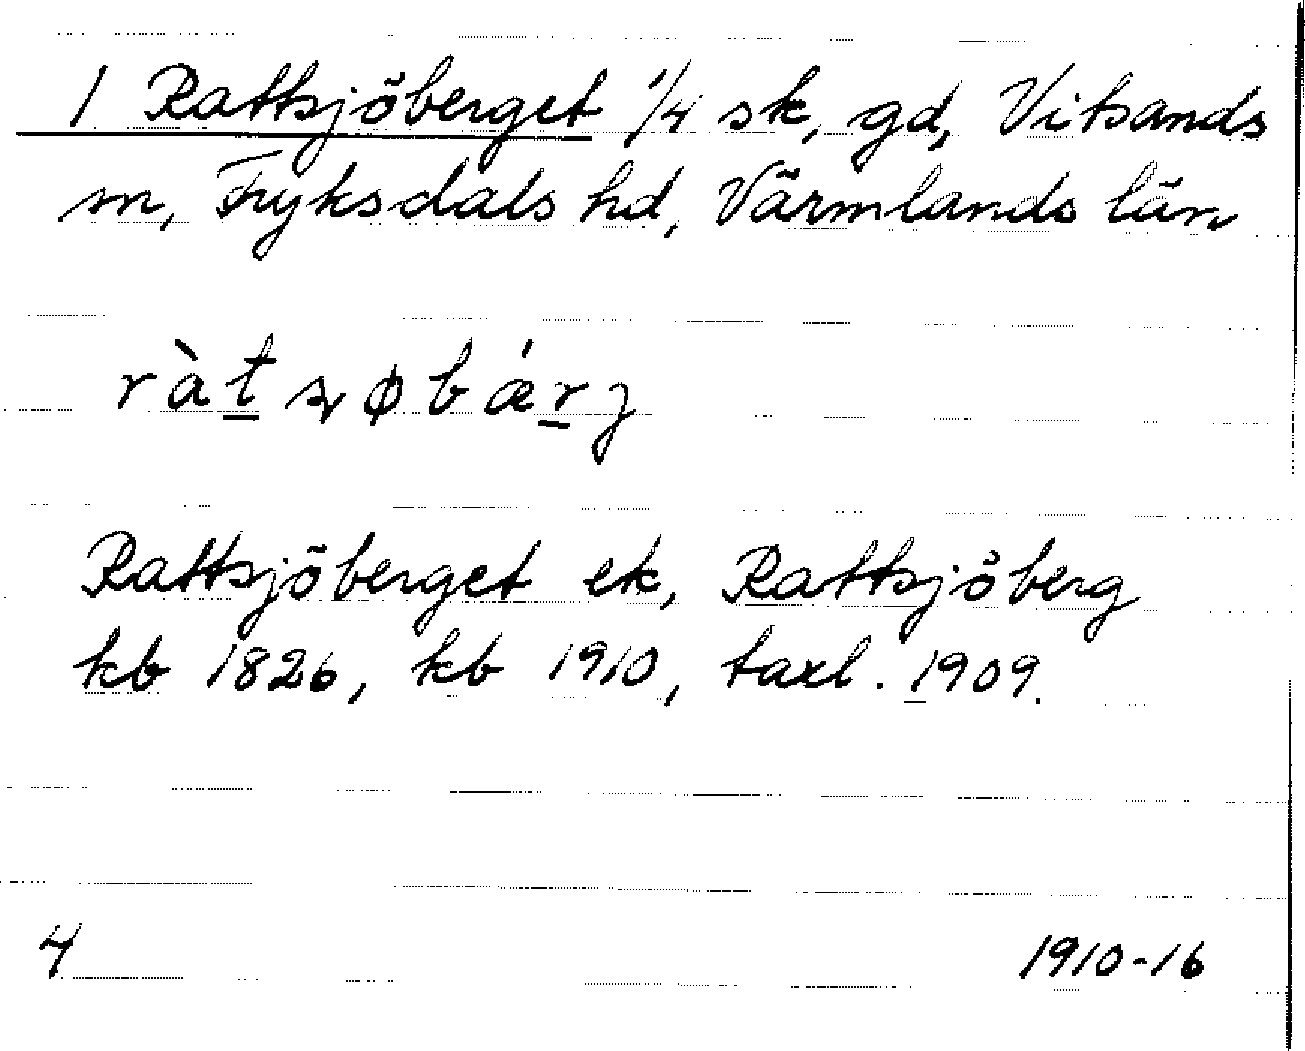 1 Rattsjöberget 1/4 sk, gd, Vitsands
sn, Fryksdals hd, Värmlands län
ràt̲ʂøbǽr̲ʒ
Rattsjöberget ek, Rattsjöberg
kb 1826, kb 1910, taxl. 1909.
4
1910-16